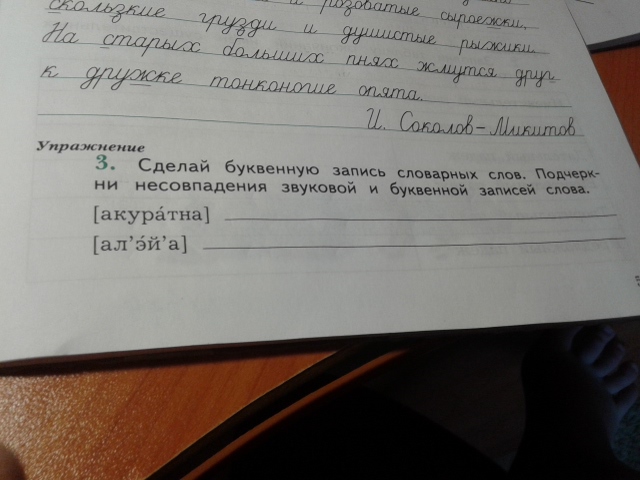 скользкие грузди и душистые рыжики.
и розоватые сыроежки,
На старых больших пнях жмутся друг
к дружке тонконогие опята.
И. Соколов-Микитов
Упражнение
3. Сделай буквенную запись словарных слов. Подчерк-
ни несовпадения звуковой и буквенной записей слова.
[акура́тна]
[ал'э́й'а]